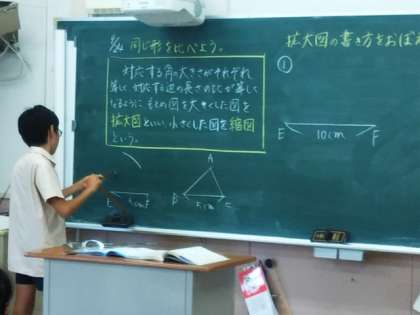 同じ形を比べよう。
対応する角の大きさがそれぞれ
等しく、対応する辺の長さの比が等しく
なるように、もとの図を大きくした図を
拡大図といい、小さくした図を縮図
という。
A
B
C
5cm
拡大図の書き方をおぼえ
①
E
10cm
F